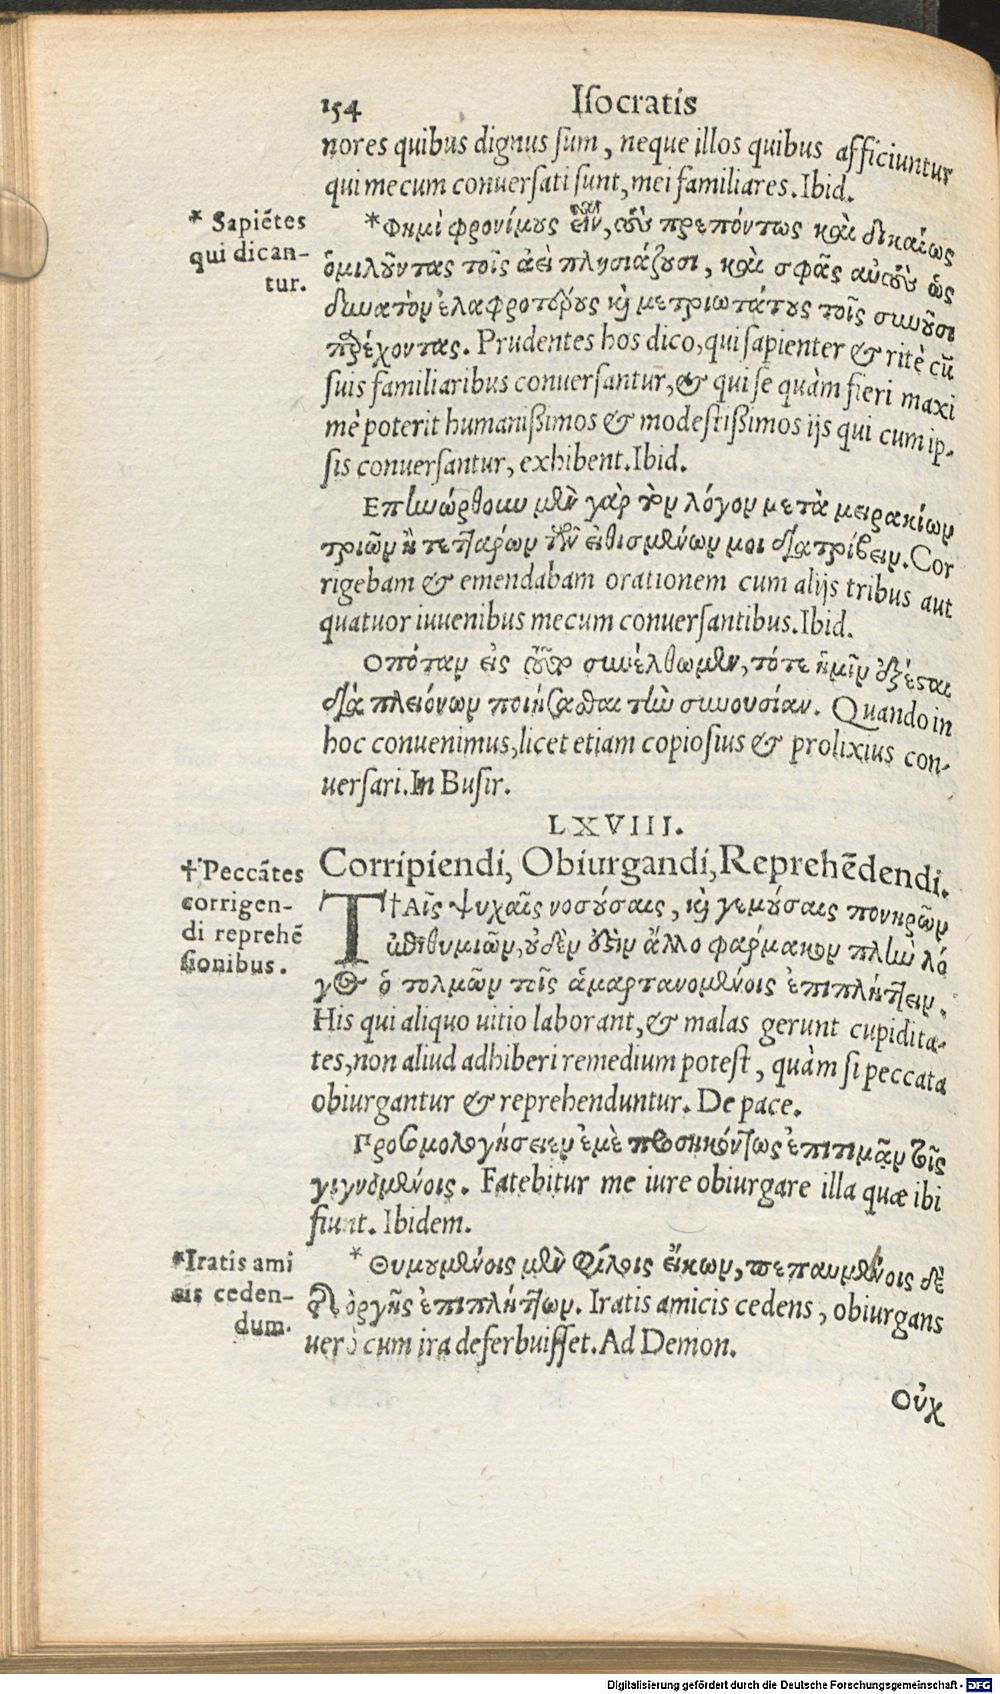 154 Iſocratis
nores quibus dignus ſum, neque illos quibus afficiuntur
qui mecum conuerſati ſunt, mei familiares. Ibid.
* Sapiẽtes
qui dican-
tur.
*Φημὶ φρονίμους εἶναι, τοὺς πρεπόντως καὶ δικαίως
ὁμιλοῦντας τοῖς ἀεὶ πλησιάζουσι, καὶ σφᾶς αὐτοὺς ὡς
δυνατὸν ἐλαφροτέρους κὶ μετριωτάτους τοῖς συνοῦσι
παρέχοντας. Prudentes hos dico, qui ſapienter & ritè cũ
ſuis familiaribus conuerſantur, & qui ſe quàm fieri maxi
mè poterit humaniſsimos & modeſtiſsimos ijs qui cum ip-
ſis conuerſantur, exhibent. Ibid.
Επηνώρθουν μὲν γὰρ τὸν λόγον μετὰ μειρακίων
τριῶν ἢ τεττάρων τῶν εἰθισμένων μοι διατρίβειν. Cor
rigebam & emendabam orationem cum alijs tribus aut
quatuor iuuenibus mecum conuerſantibus. Ibid.
Οπόταν εἰς συνέλθωμεν, τότε ἡμῖν ἐξέσται
διὰ πλειόνων ποιήσασθαι τὴν συνουσίαν. Quando in
hoc conuenimus, licet etiam copioſius & prolixius con-
uerſari. In Buſir.
LXVIII.
Corripiendi, Obiurgandi, Reprehẽdendi.
† Peccãtes
corrigen-
di reprehẽ
ſionibus.
Τ†Αῖς ψυχαῖς νοσούσαις, κὶ γεμούσαις πονηρῶν
ἐπιθυμιῶν, οὐδὲν ἐστὶν ἄλλο φάρμακον πλὴν λό
γος ὁ τολμῶν τοῖς ἁμαρτανομένοις ἐπιπλήττειν.
His qui aliquo uitio laborant, & malas gerunt cupidita-
tes, non aliud adhiberi remedium poteſt, quàm ſi peccata
obiurgantur & reprehenduntur. De pace.
Προσομολογήσειεν ἐμὲ προσηκόντως ἐπιτιμᾶν τοῖς
γιγνομένοις. Fatebitur me iure obiurgare illa quæ ibi
fiunt. Ibidem.
*Iratis ami
cis ceden-
dum.
* Θυμουμένοις μὲν φίλοις εἴκων, πεπαυμένοις δὲ
τῆς ὀργῆς ἐπιπλήττων. Iratis amicis cedens, obiurgans
uerò cum ira deferbuiſſet. Ad Demon.
Οὐχ
Digitalisierung gefördert durch die Deutsche Forschungsgemeinschaft - DFG